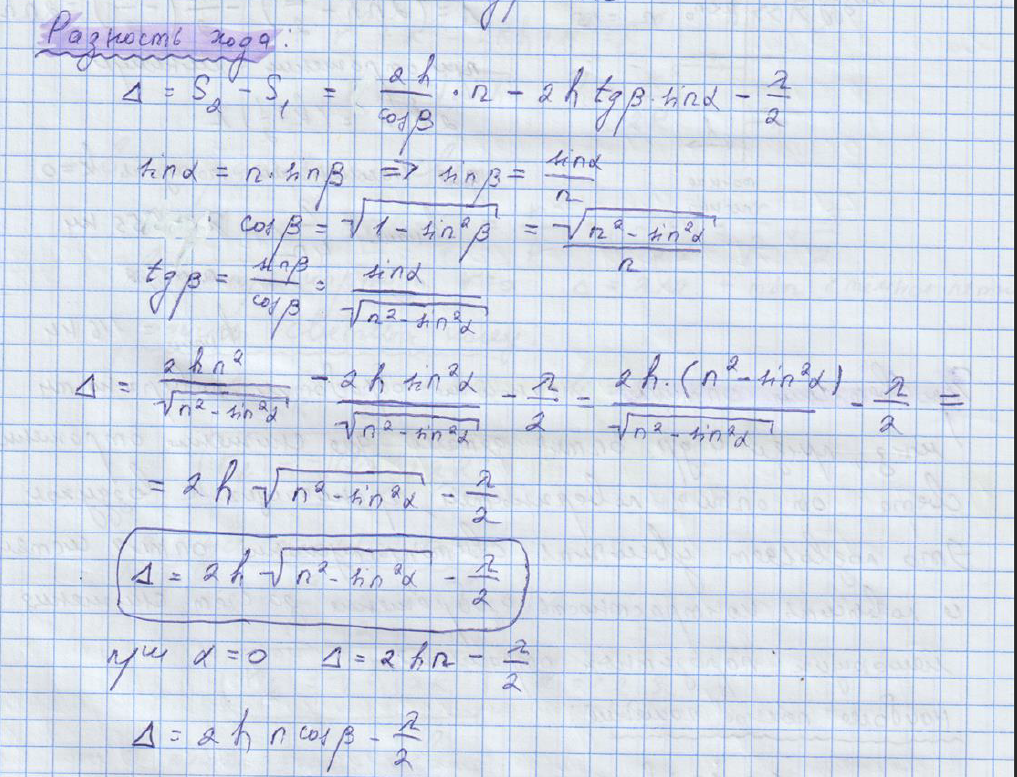 Разность хода:
Δ = S₂ - S₁ = 2h/cosβ · n - 2h tgβ · sinα - λ/2
sinα = n · sinβ => sinβ = sinα/n
cosβ = √(1 - sin²β) = √(n² - sin²α)/n
tgβ = sinβ/cosβ = sinα/√(n² - sin²α)
Δ = 2hn²/√(n² - sin²α) - 2h sin²α/√(n² - sin²α) - λ/2 = 2h · (n² - sin²α)/√(n² - sin²α) - λ/2 =
= 2h √(n² - sin²α) - λ/2
Δ = 2h √(n² - sin²α) - λ/2
при α = 0 Δ = 2hn - λ/2
Δ = 2h n cosβ - λ/2